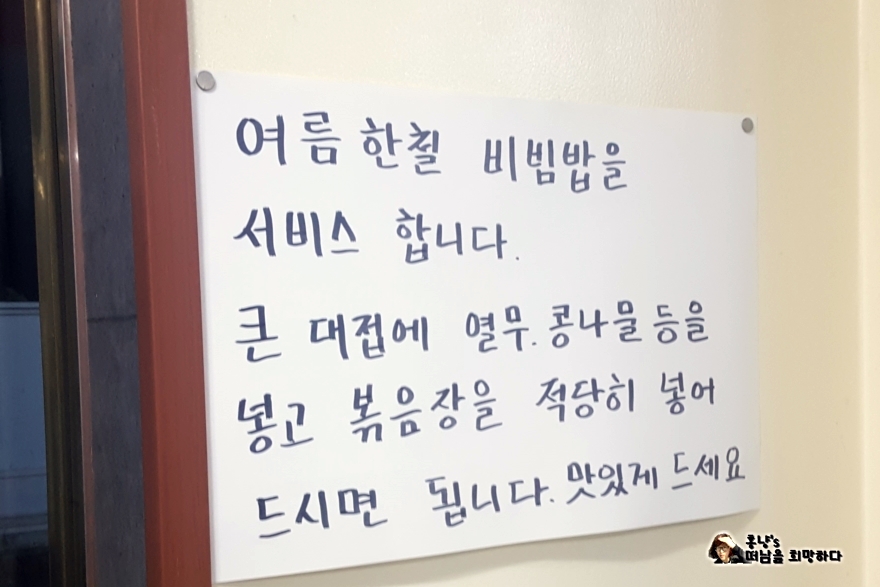 여름 한철 비빔밥을
서비스 합니다.
큰 대접에 열무. 콩나물 등을
넣고 볶음장을 적당히 넣어
드시면 됩니다. 맛있게 드세요
홍냥's
떠남을 희망하다